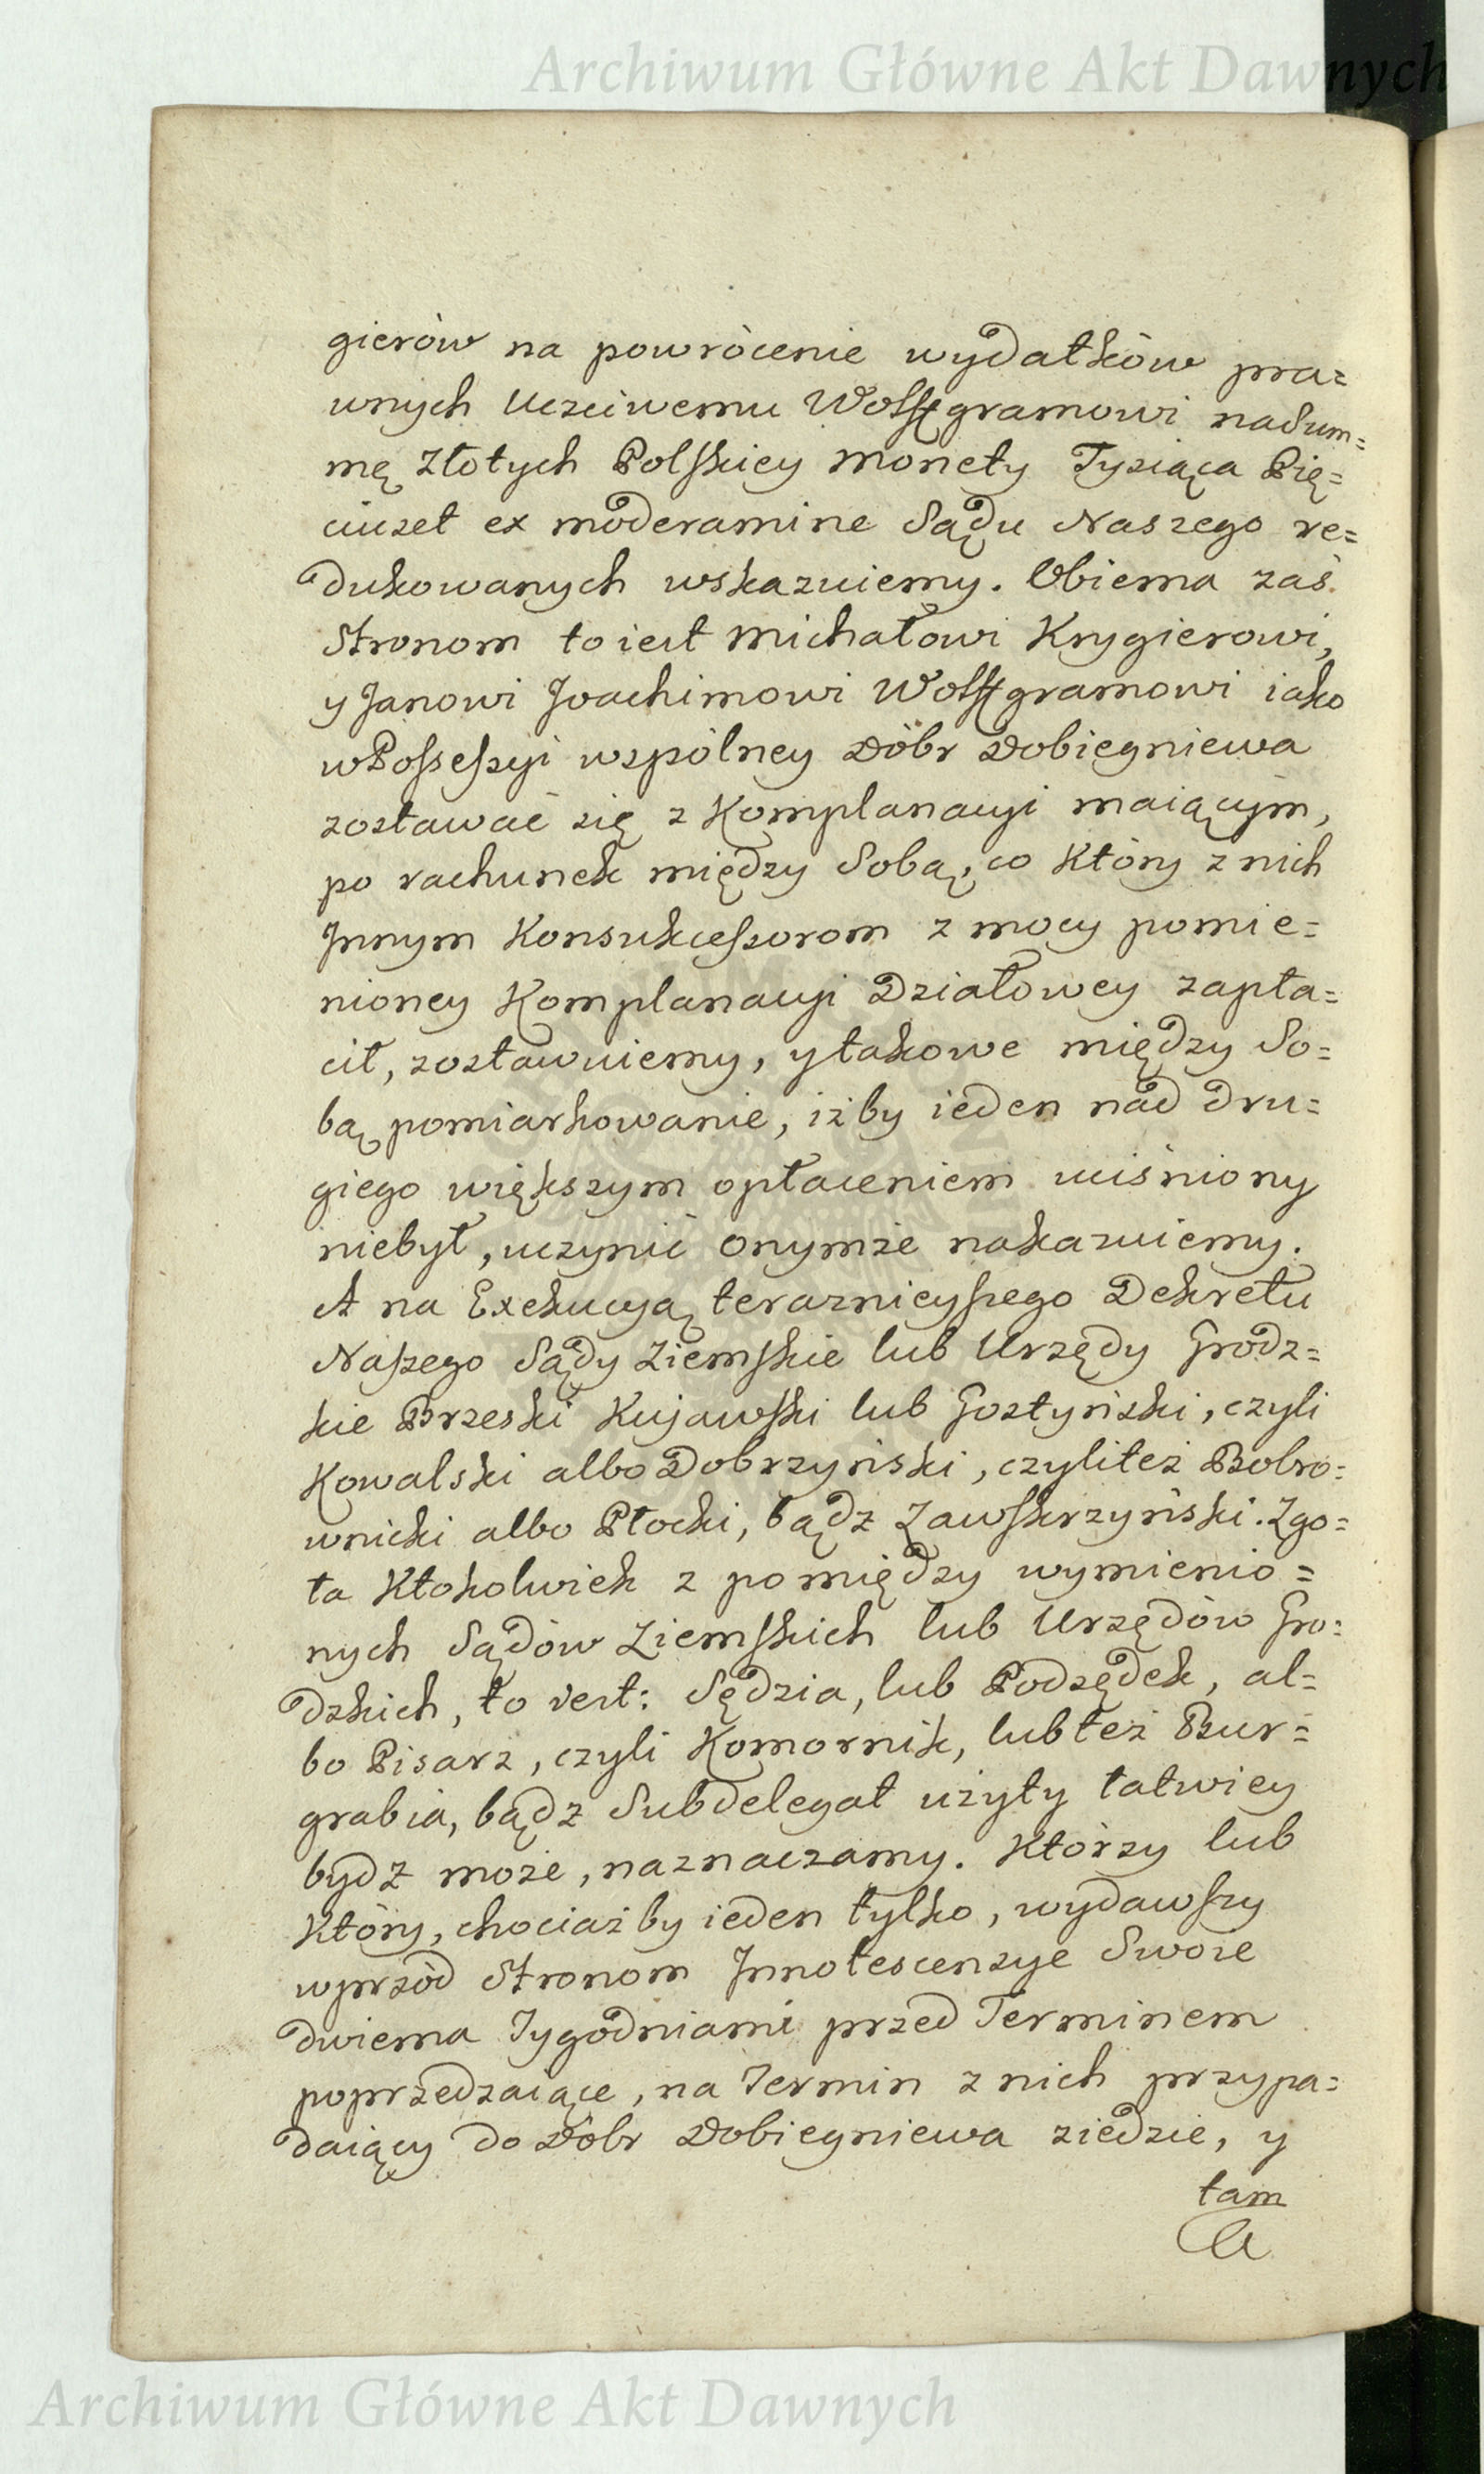 Archiwum Główne Akt Dawnych
gierów na powrócenie wydatków pra=
wnych Uczciwemu Wolffgramowi na Sum=
mę Złotych Polskiey Monety Tysiąca Pię=
ciuset ex moderamine Sądu Naszego re=
dukowanych wskazuiemy. Obiema zaś
Stronom to iest Michałowi Krygierowi,
y Janowi Joachimowi Wolffgramowi iako
w Possessyi wspólney Dóbr Dobiegniewa
zostawać się z Komplanacyi maiącym,
po rachunek między Sobą, co który z nich
Innym Konsukcessorom z mocy pomie=
nioney Komplanacyi Działowey zapła=
cił, zostawuiemy, y takowe między So=
bą pomiarkowanie, iżby ieden nad dru=
giego większym opłaceniem uciśniony
niebył, uczynić onymże nakazuiemy.
A na Exekucyą teraznieyszego Dekretu
Naszego Sądy Ziemskie lub Urzędy Grodz=
kie Brzeski Kujawski lub Gostyński, czyli
Kowalski albo Dobrzyński, czyliteż Bobro=
wnicki albo Płocki, bądz Zawskrzyński. Zgo=
ła Ktokolwiek z pomiędzy wymienio=
nych Sądów Ziemskich lub Urzędów Gro=
dzkich, to iest: Sędzia, lub Podsędek, al=
bo Pisarz, czyli Komornik, lub też Bur=
grabia, bądz Subdelegat użyty łatwiey
bydz może, naznaczamy. Którzy lub
Który, chociażby ieden tylko, wydawszy
wprzód Stronom Innotescensye Swoie
dwiema Tygodniami przed Terminem
poprzedzaiące, na Termin z nich przypa=
daiący do Dóbr Dobiegniewa ziedzie, y
tam
Archiwum Główne Akt Dawnych